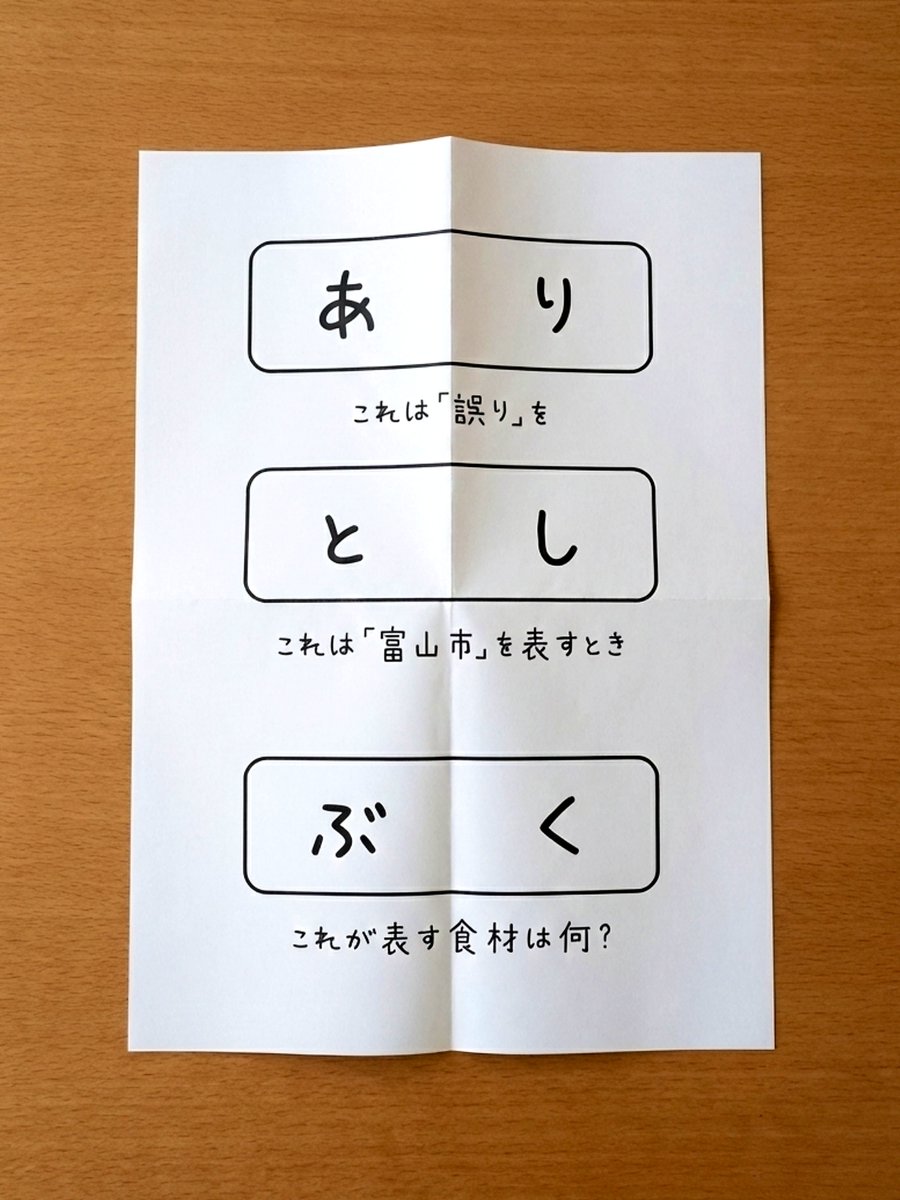 あ り
これは「誤り」を
と し
これは「富山市」を表すとき
ぶ く
これが表す食材は何?